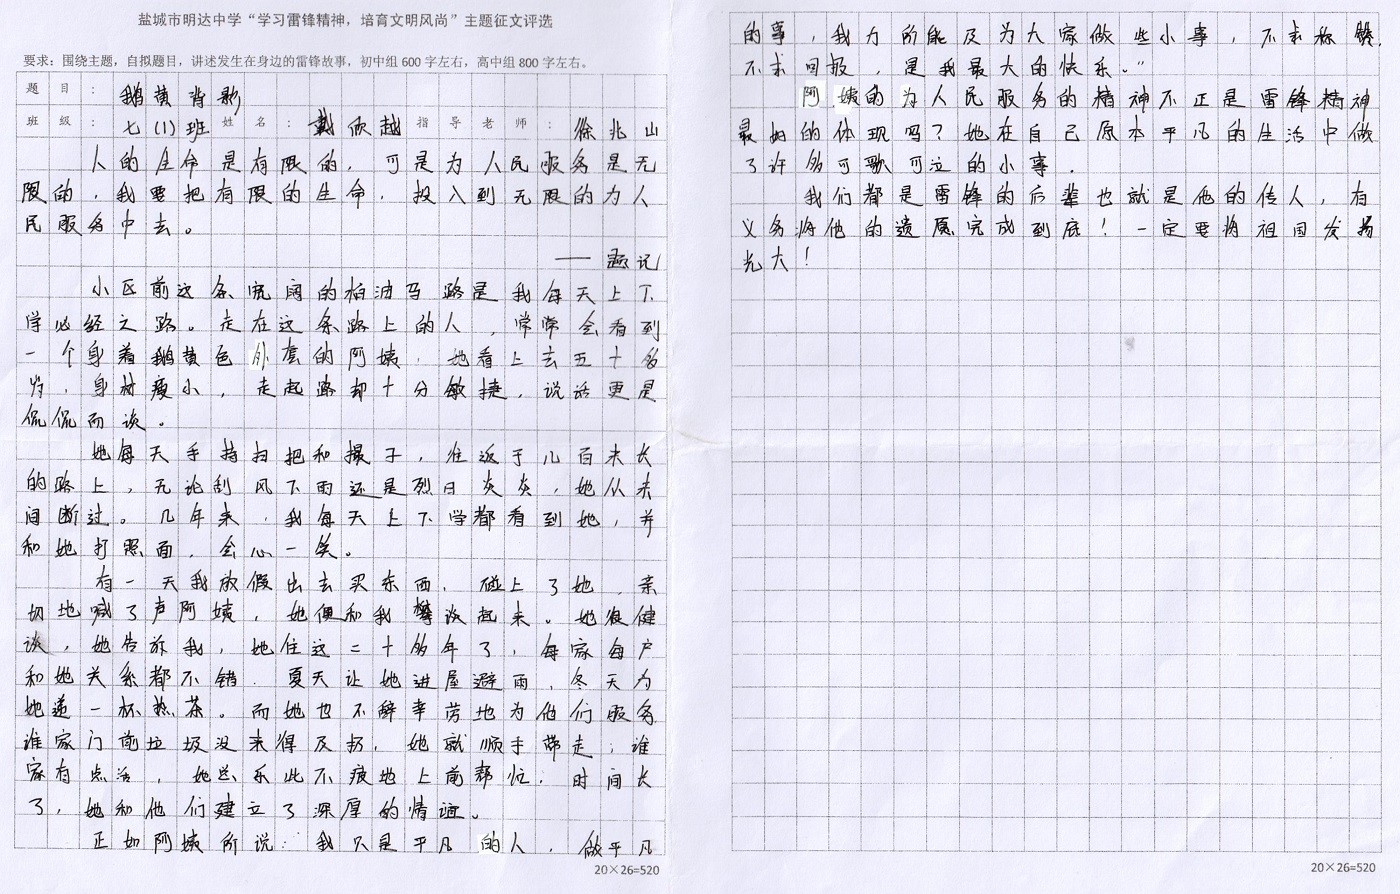 盐城市明达中学“学习雷锋精神，培育文明风尚”主题征文评选
要求：围绕主题，自拟题目，讲述发生在身边的雷锋故事，初中组 600 字左右，高中组 800 字左右。
题目：鹅黄背影
班级：七（1）班 姓名：戴欣越 指导老师：徐兆山
人的生命是有限的，可是为人民服务是无
限的，我要把有限的生命，投入到无限的为人
民服务中去。
——题记
小区前这条宽阔的柏油马路是我每天上下
学必经之路。走在这条路上的人，常常会看到
一个身着鹅黄色外套的阿姨，她看上去五十多
岁，身材瘦小，走起路却十分敏捷，说话更是
侃侃而谈。
她每天手持扫把和撮子，往返于几百米长
的路上，无论刮风下雨还是烈日炎炎，她从未
间断过。几年来，我每天上下学都看到她，并
和她打照面，会心一笑。
有一天我放假出去买东西，碰上了她，亲
切地喊了声阿姨，她便和我攀谈起来。她很健
谈，她告诉我，她住这二十多年了，每家每户
和她关系都不错，夏天让她进屋避雨，冬天为
她递一杯热茶。而她也不辞辛劳地为他们服务
谁家门前垃圾没来得及扔，她就顺手带走；谁
家有点活，她总乐此不疲地上前帮忙，时间长
了，她和他们建立了深厚的情谊。
正如阿姨所说：我只是平凡的人，做平凡
20×26=520
的事，我力所能及为大家做些小事，不求称赞，
不求回报，是我最大的快乐。”
阿姨的为人民服务的精神不正是雷锋精神
最好的体现吗？她在自己原本平凡的生活中做
了许多可歌可泣的小事。
我们都是雷锋的后辈也就是他的传人，有
义务将他的遗愿完成到底！一定要将祖国发扬
光大！
20×26=520